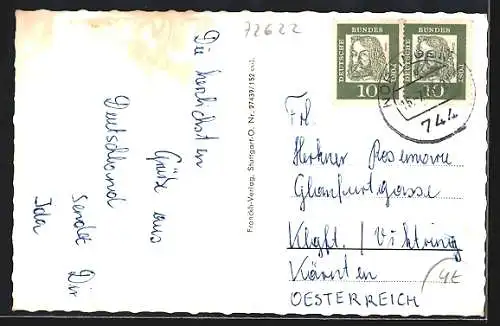 72622
Die herzlichsten
Grüße aus
Deutschland
sendet Dir
Ida
Franckh-Verlag, Stuttgart-O. Nr. 27439/152
DEUTSCHE
BUNDES
POST
10
DEUTSCHE
BUNDES
POST
10
744
Frl.
Herkner Rosemarie
Glanfurtgasse
Klgft. / Viktring
Kärnten
OESTERREICH
4E